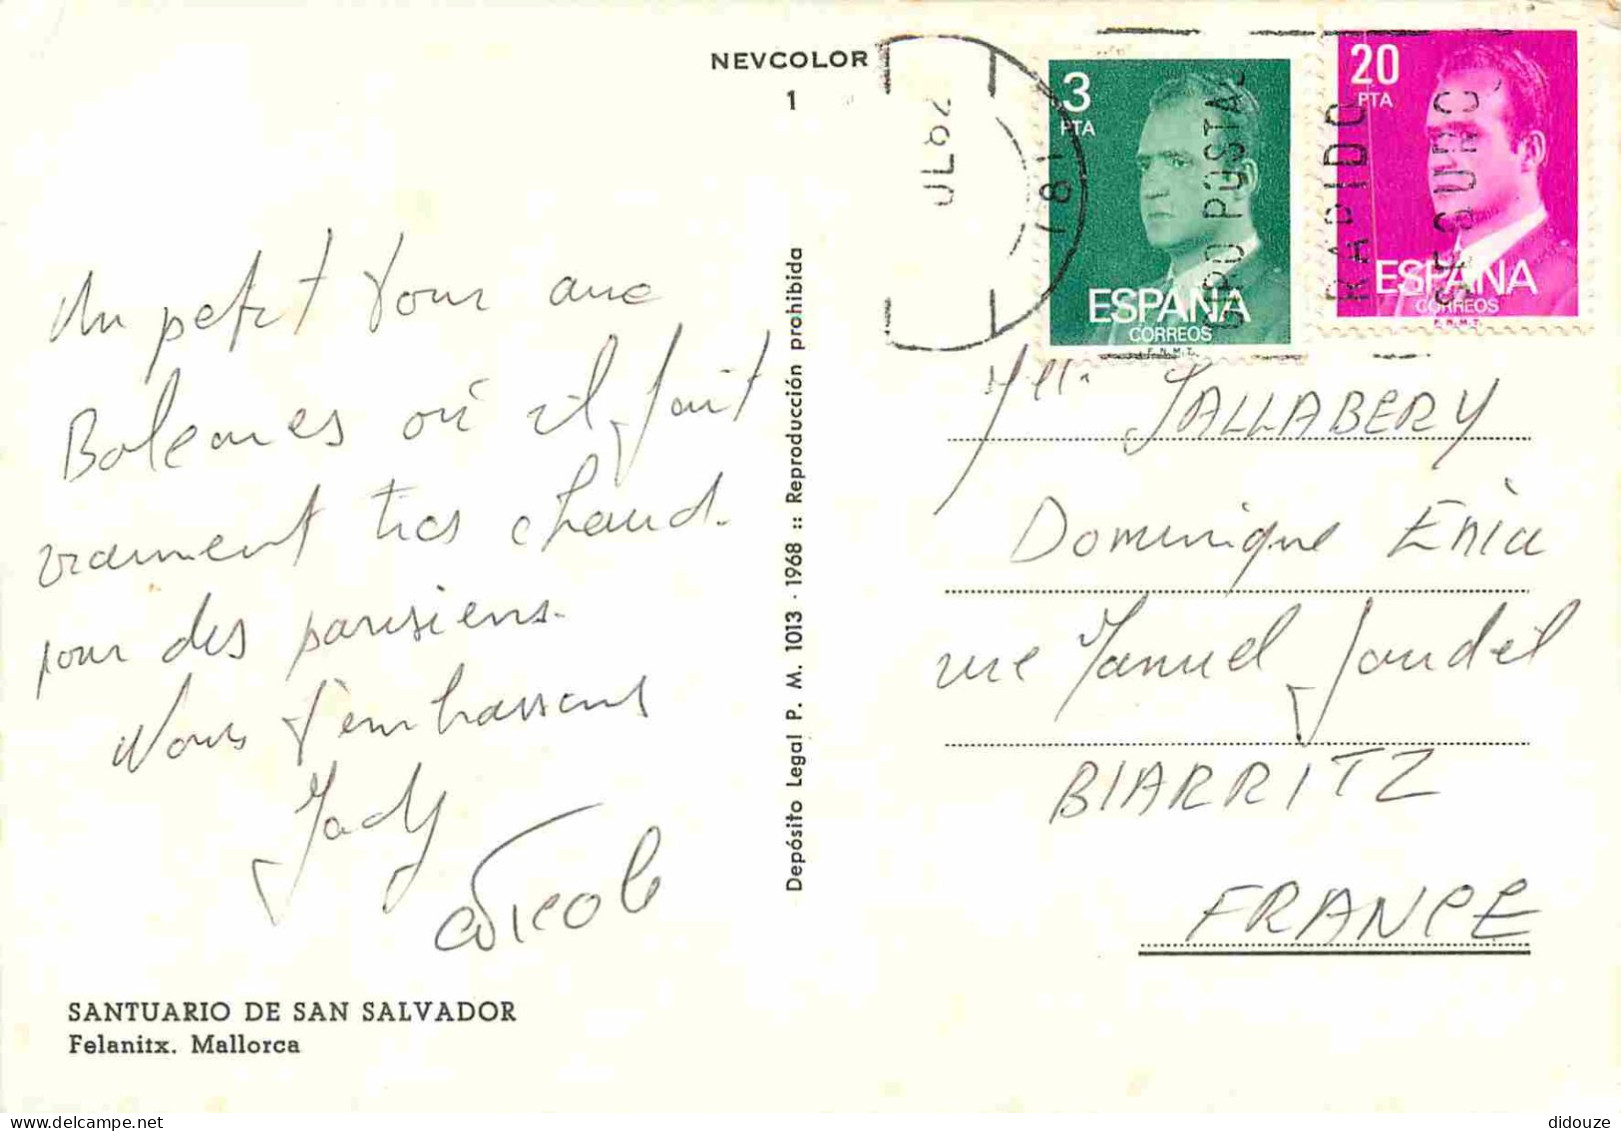 NEVCOLOR
1
Un petit jour aux
Baléares où il fait
vraiment très chaud.
pour des parisiens.
Nous t'embrassons
Jady
Nicole
SANTUARIO DE SAN SALVADOR
Felanitx. Mallorca
Depósito Legal P. M. 1013 - 1968 :: Reproducción prohibida
JUL 82
181
3
PTA
ESPAÑA
CORREOS
F.N.M.T.
20
PTA
ESPAÑA
CORREOS
F.N.M.T.
GIRO POSTAL
RAPIDO
SEGURO
Melle JALLABERY
Dominique
rue Manuel
BIARRITZ
FRANCE
didouze